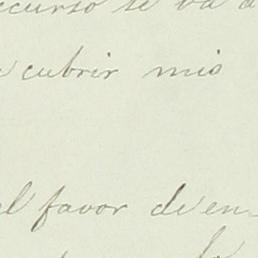 ecurso se va a
cubrir mis
el favor de en-